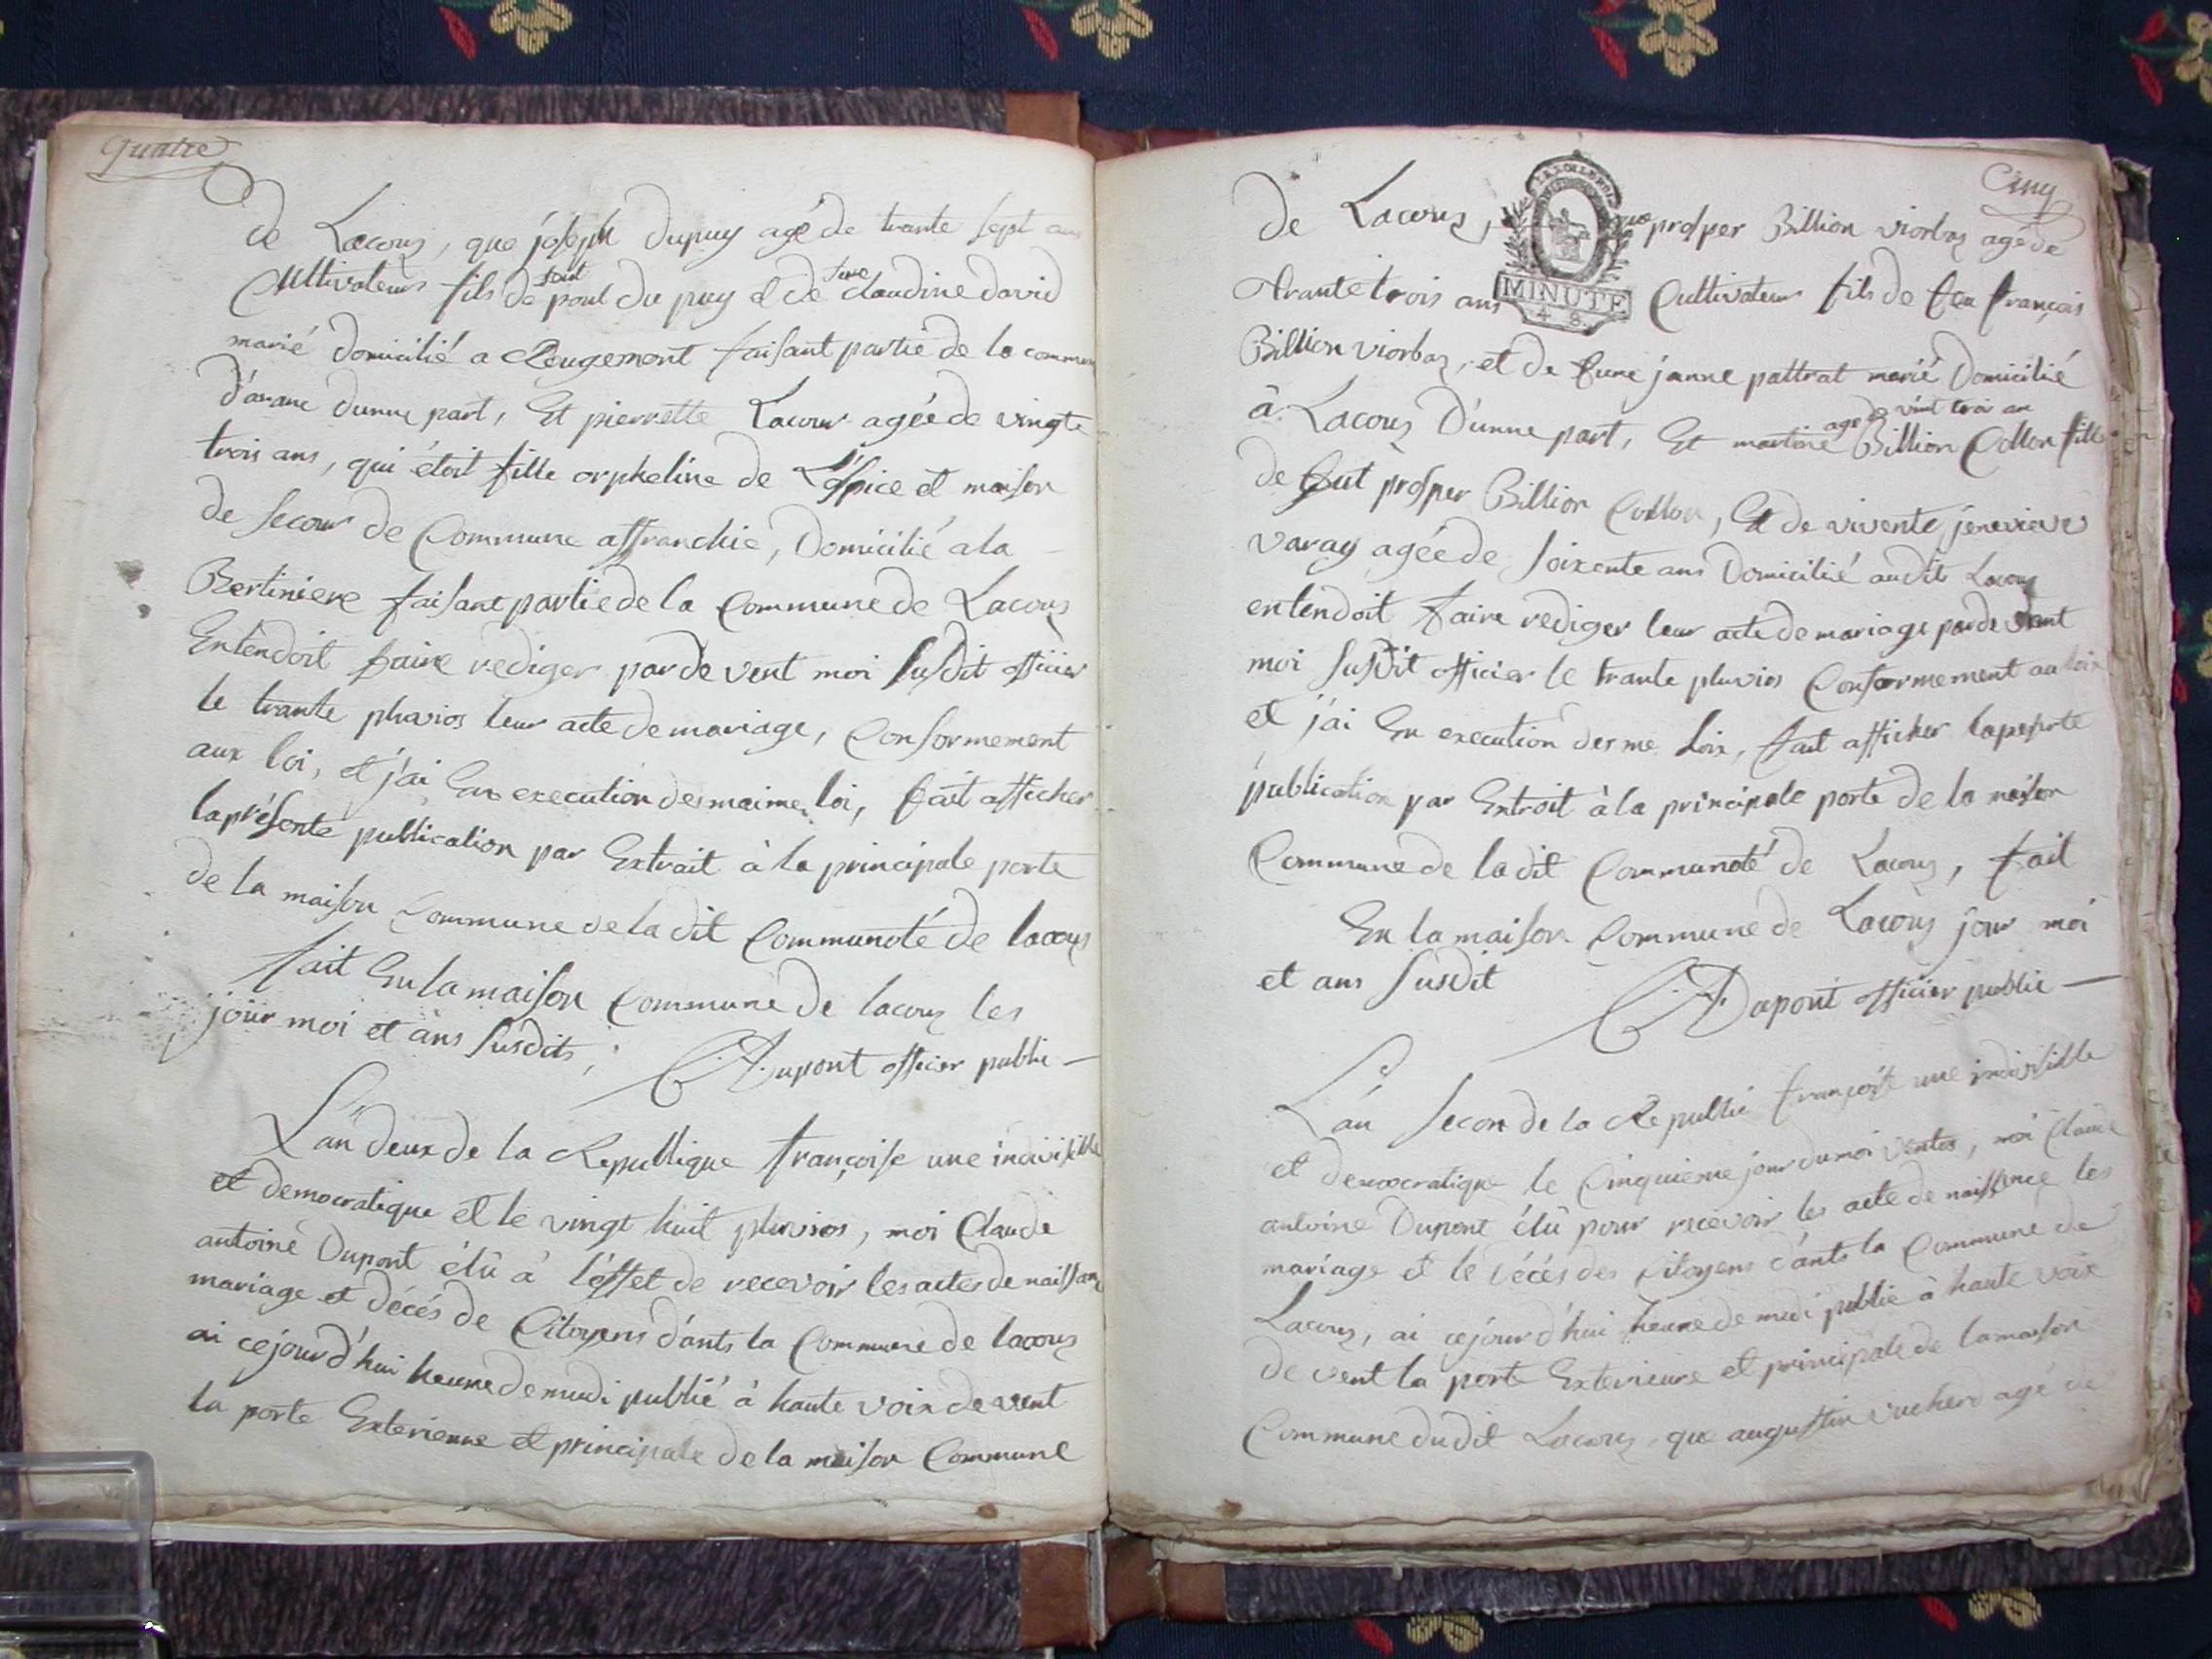 quatre
de Lacoux, que joseph Dupuy agé de trante sept ans
Cultivateurs fils de feut poul du puy et de fune claudine david
marié domicilié a Rougemont faisant partie de la commun
d'aranc dunne part, Et pierrette Lacour agée de vingte
trois ans, qui étoit fille orpheline de L'ôspice et maison
de secour de Commune affranchie, Domicilié a la
Bertiniere faisant partie de la Commune de Lacoux
Entendoit faire rediger par de vent moi susdit officier
le trante pluvios leur acte de mariage, Conformement
aux loi, et j'ai En execution des maime loi, fait afficher
la présente publication par Extrait à la principale porte
de la maison Commune de la dit Communoté de lacoux
fait En la maison Commune de lacoux les
jour moi et ans susdits, Dupont officier public
L'an deux de la Republique françoise une indivisible
et democratique et le vingt huit pluvios, moi Claude
antoine Dupont élû à l'effet de recevoir les actes de naissanc
mariage et décés de Citoyens d'ants la Commune de lacoux
ai cejourd'hui heure de midi publié à haute voix de vent
la porte Exterieure et principale de la maison Commune
Cinq
de Lacoux, que prosper Billion viorbaz agé de
MINUTE
4 S.
trante trois ans Cultivateur fils de feu françois
Billion viorbaz, et de fune janne pattrat marié Domicilié
à Lacoux D'unne part, Et martine agé de vint troi an Billion Collon fille
de feut prosper Billion Collon, Et de vivente jenevieve
varay agée de soixente ans Domicilié audit Lacoux
entendoit faire rediger leur acte de mariage par de vent
moi susdit officier le trante pluvios Conformement au loix
et j'ai En execution des me loix, fait afficher la
publication par Extrait à la principale porte de la maison
Commune de la dit Communoté de Lacoux, fait
En la maison Commune de Lacoux jour moi
et ans susdit Dupont officier public
L'an secon de la Republi françoise une indivisible
et democratique le Cinquieme jour du moi ventos, moi Claude
antoine Dupont élû pour recevoir les acte de naissence les
mariage et le décés des Citoyens d'ants la Commune de
Lacoux, ai cejourd'hui heure de midi publié à haute voix
de vent la porte Exterieure et principale de la maison
Commune dudit Lacoux que augustin vucherd agé de